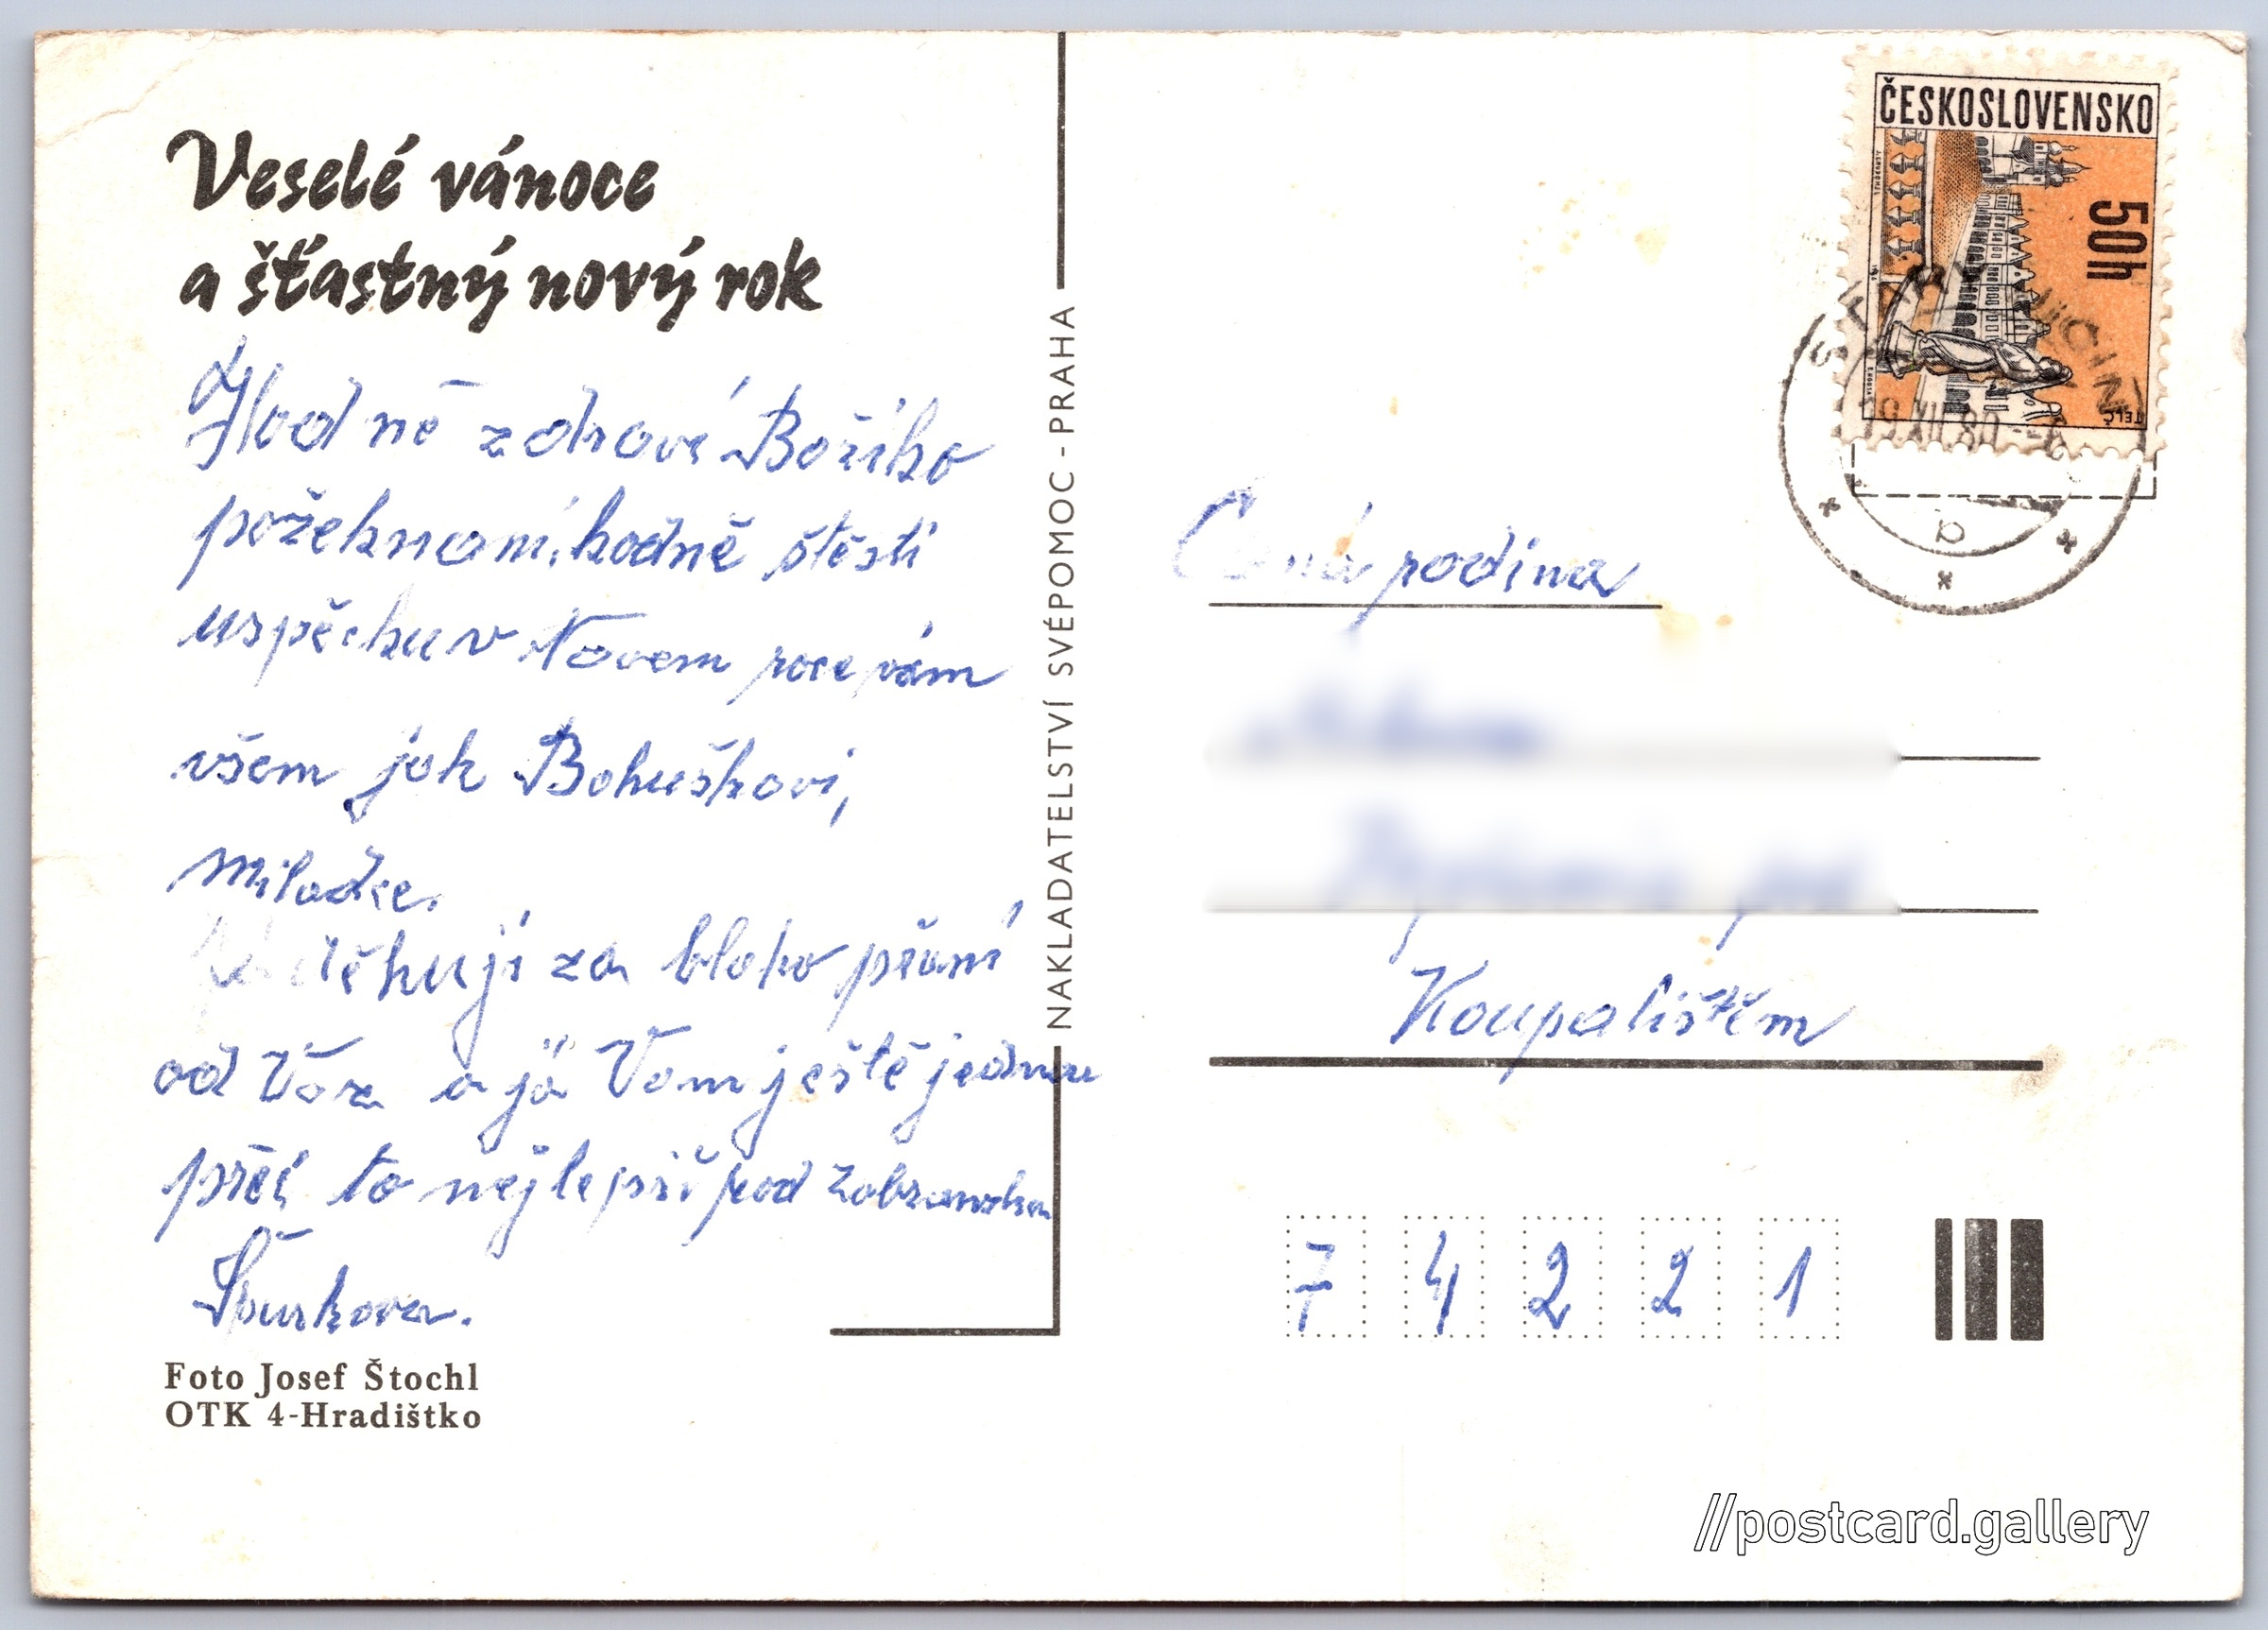 Veselé vánoce
a šťastný nový rok
Hodně zdraví Božího
požehnaní, hodně štěsti
uspěchu v Novem roce vám
všem jak Bohuškovi,
Miladce.
děkuji za blaho přání
od Vás a já Vam ještě jednou
přeí to nejlepší pod Zabranska
Špurkova.
Foto Josef Štochl
OTK 4-Hradištko
NAKLADATELSTVÍ SVÉPOMOC - PRAHA
ČESKOSLOVENSKO
50h
TELČ
STARÝ JIČÍN
19.XII.80
a
Cená rodina
Koupalištěm
7 4 2 2 1
//postcard.gallery